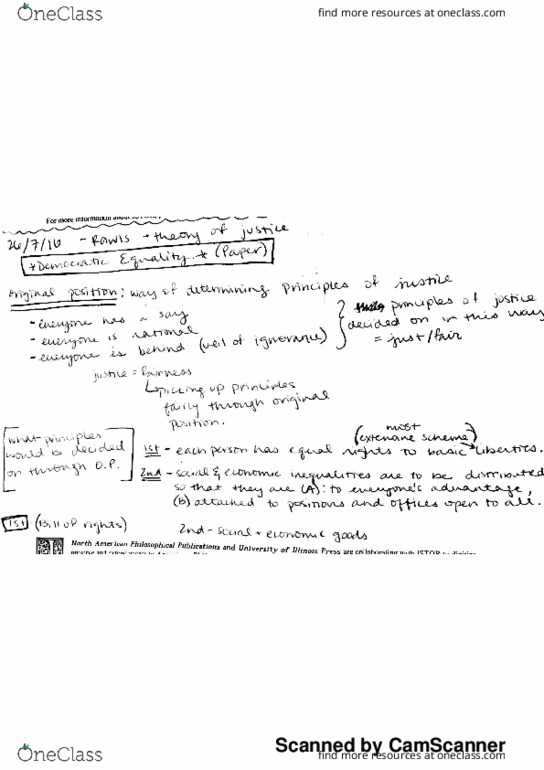 OneClass
find more resources at oneclass.com
For more information about
26/7/16 - Rawls → theory of justice
*Democratic Equality * (Paper)
original position: way of determining principles of justice
- everyone has a say
- everyone is rational
- everyone is behind (veil of ignorance)
principles of justice
decided on in this way
= just/fair
justice = fairness
↳ picking up principles
fairly through original
position.
what principles
would be decided
on through O.P.
most
(extensive scheme)
1st - each person has equal rights to basic liberties.
2nd - social & economic inequalities are to be distributed
so that they are (A): to everyone's advantage,
(B) attached to positions and offices open to all.
1st (Bill of rights)
2nd - social + economic goods
North American Philosophical Publications and University of Illinois Press are collaborating with JSTOR to
Scanned by CamScanner
OneClass
find more resources at oneclass.com